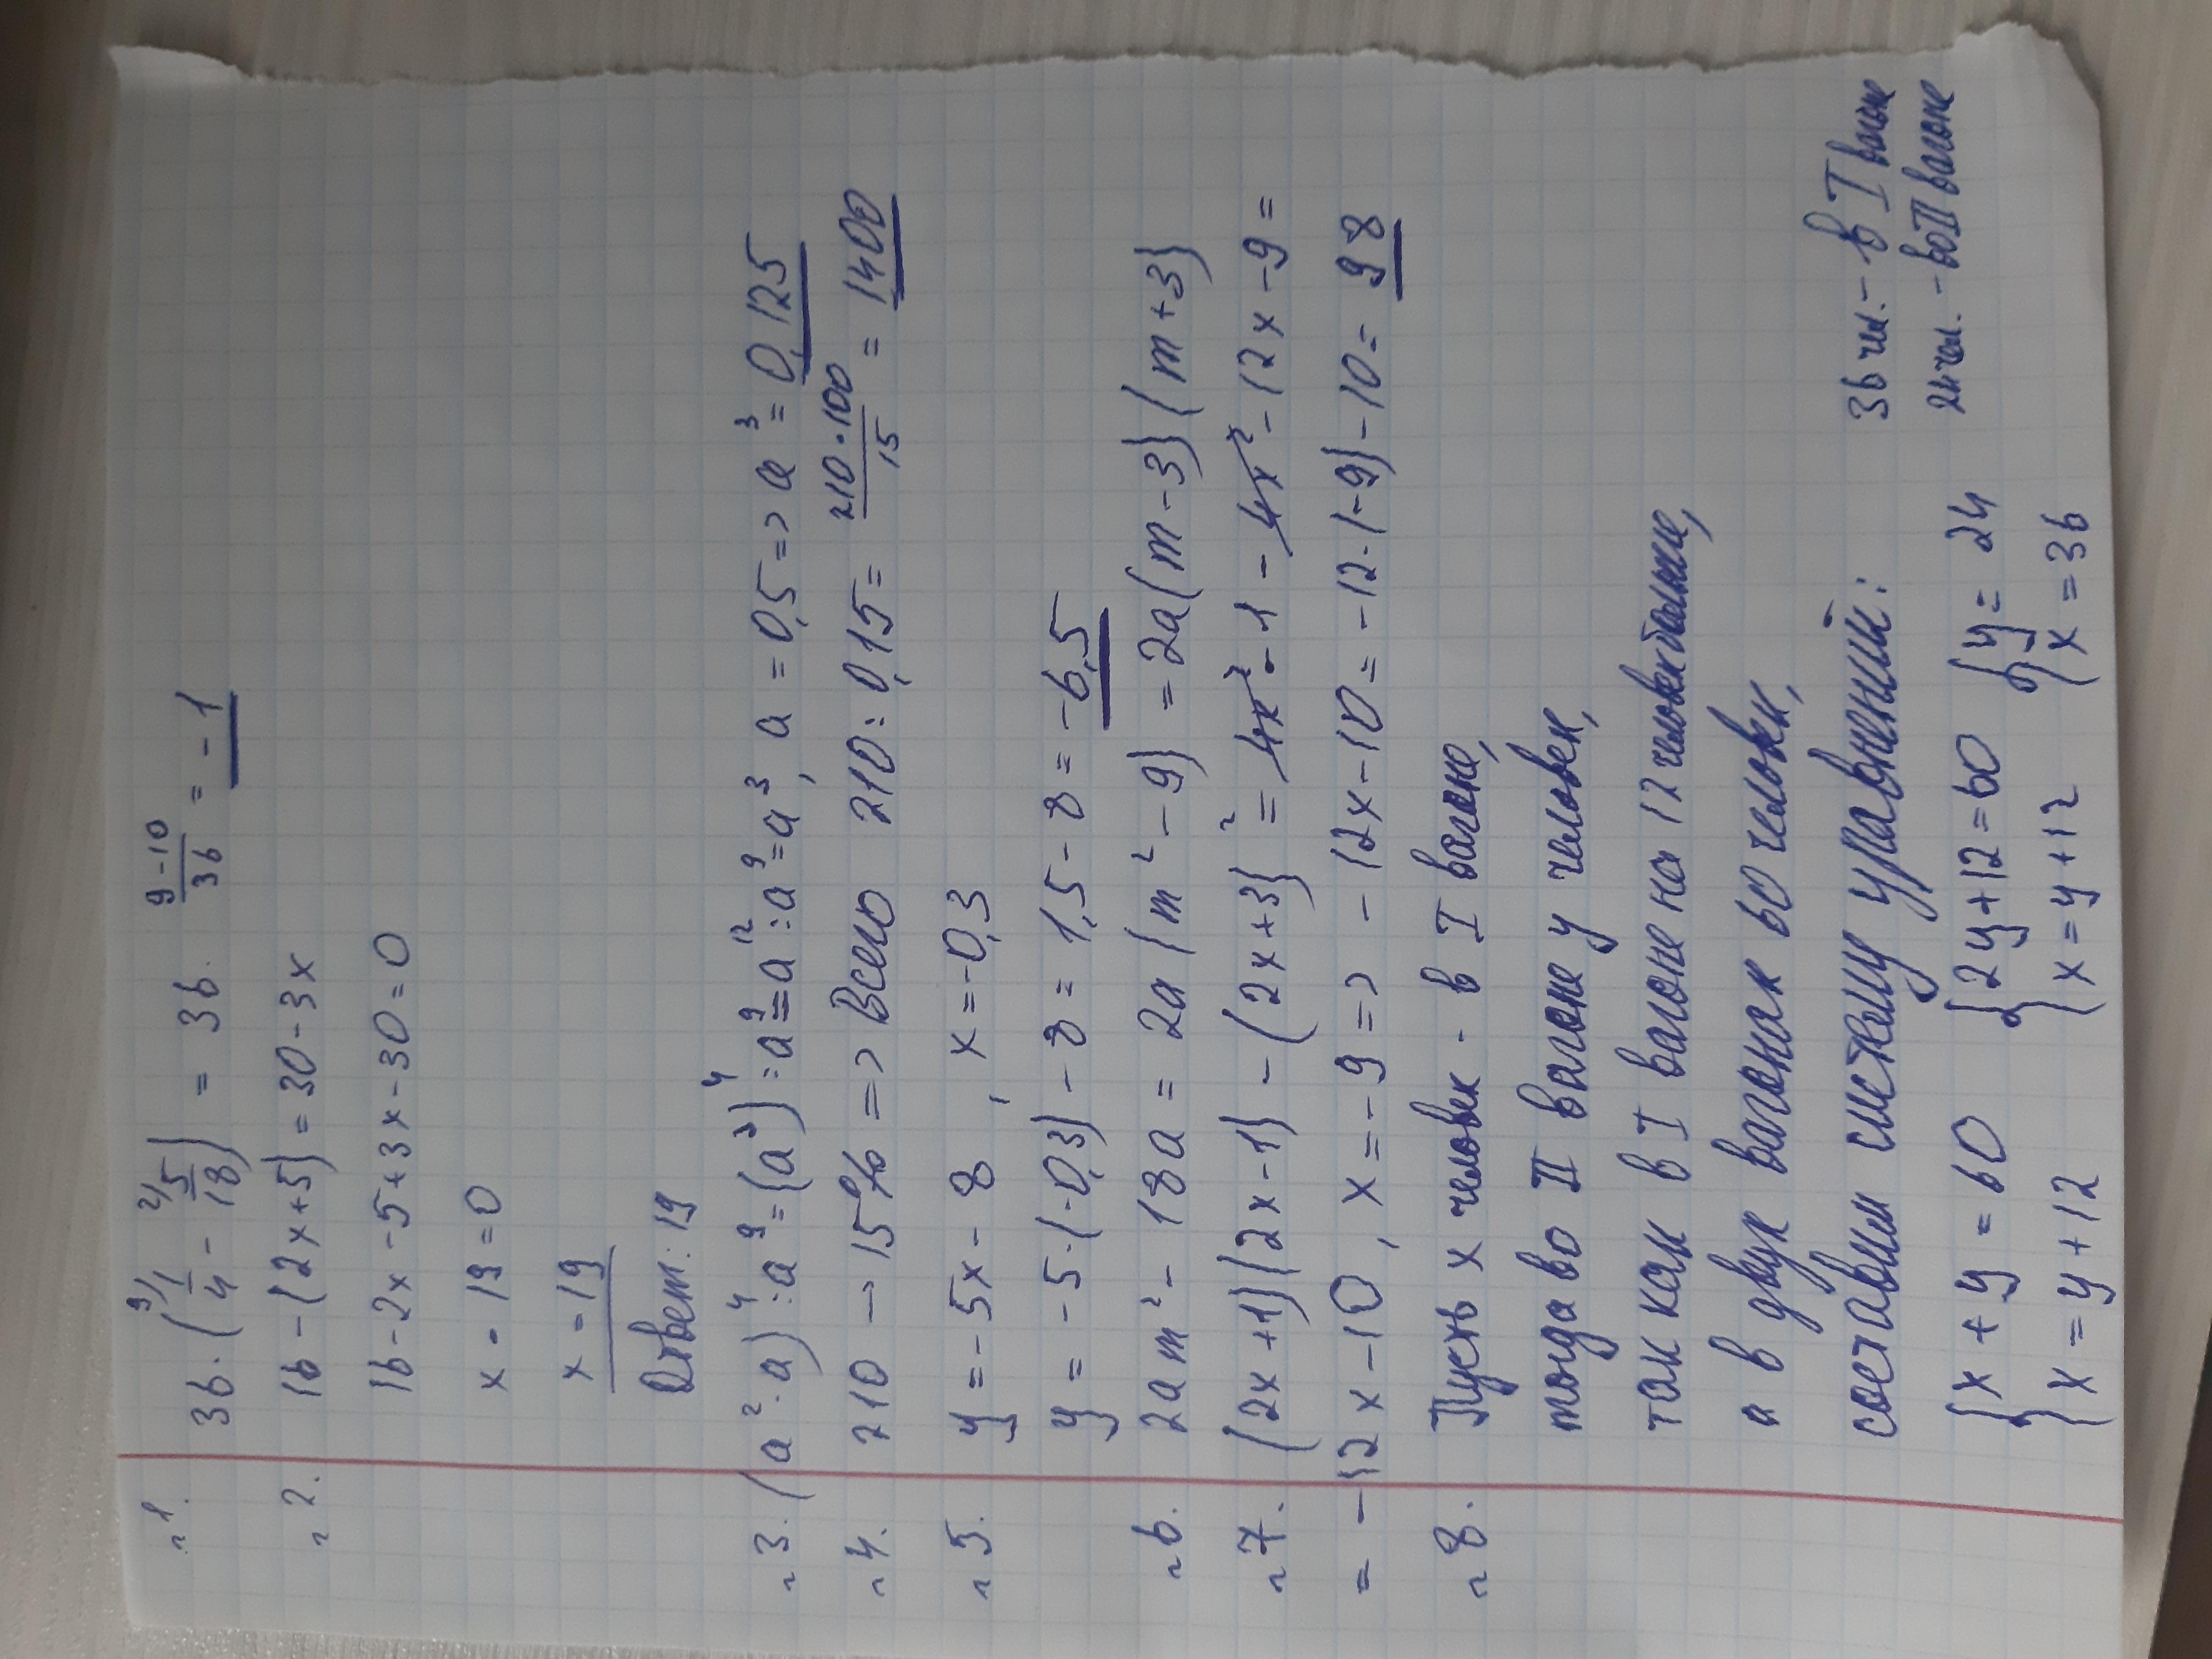 №1. 36·(9/1/4 - 2/5/18) = 36 · (9-10)/36 = -1
№2. 16-(2x+5)=30-3x
16-2x-5+3x-30=0
x-19=0
x=19
Ответ: 19
№3. (a²·a)⁴:a⁹=(a³)⁴:a⁹=a¹²:a⁹=a³, a=0,5=>a³=0,125
№4. 210 → 15% => Всего 210:0,15= (210·100)/15 = 1400
№5. y=-5x-8, x=-0,3
y=-5·(-0,3)-8=1,5-8=-6,5
№6. 2am²-18a=2a(m²-9)=2a(m-3)(m+3)
№7. (2x+1)(2x-1)-(2x+3)²=4x²-1-4x²-12x-9=
=-12x-10, x=-9=>-12x-10=-12·(-9)-10=98
№8. Пусть x человек - в I вагоне,
тогда во II вагоне y человек,
так как в I вагоне на 12 человек больше,
а в двух вагонах 60 человек,
составим систему уравнений:
{x+y=60 {2y+12=60 {y=24 36 чел.-в I вагоне
{x=y+12 {x=y+12 {x=36 24 чел.-во II вагоне